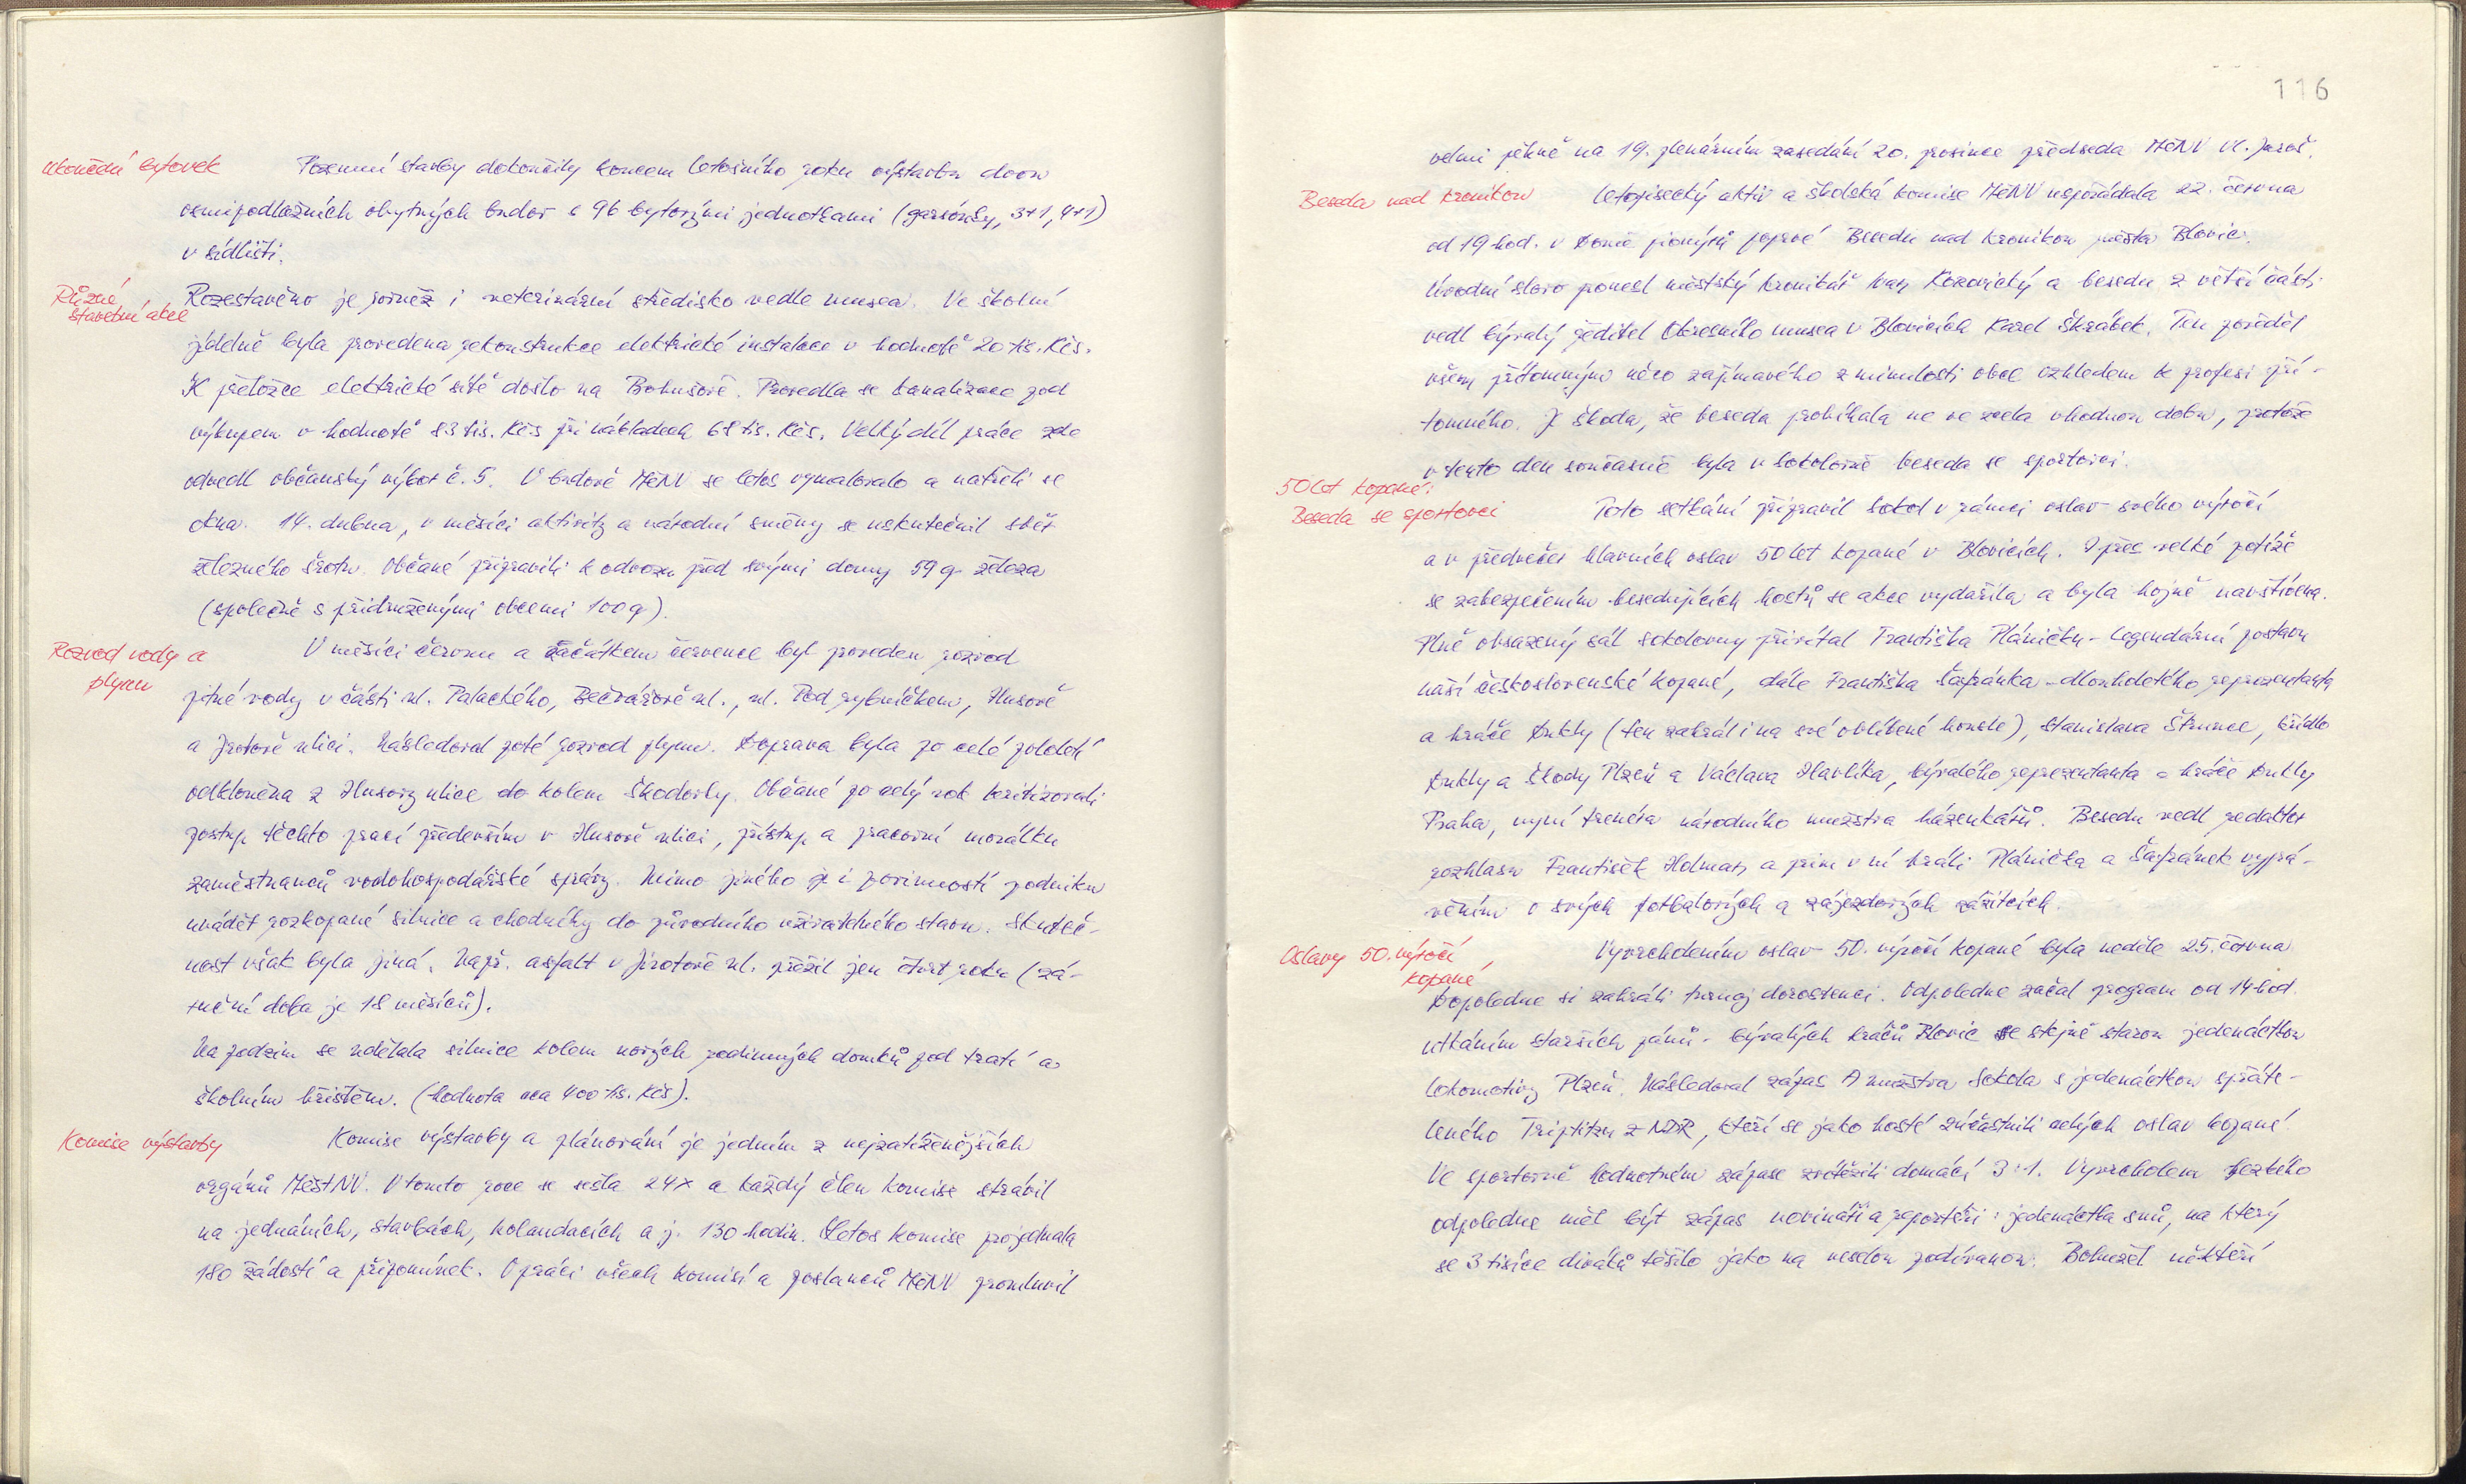 Ukončení bytovek
Pozemní stavby dokončily koncem letošního roku výstavbu dvou
osmipodlažních obytných budov s 96 bytovými jednotkami (garsonky, 3+1, 4+1)
v sídlišti.
Různé
stavební akce
Rozestavěno je rovněž i veterinární středisko vedle musea. Ve školní
jídelně byla provedena rekonstrukce elektrické instalace v hodnotě 20 tis. Kčs.
K přeložce elektrické sítě došlo na Bohušově. Provedla se kanalizace pod
výkupem v hodnotě 83 tis. Kčs při nákladech 68 tis. Kčs. Velký díl práce zde
odvedl občanský výbor č. 5. V budově MěNV se letos vymalovalo a natřeli se
okna. 14. dubna, v měsíci aktivity a národní směny se uskutečnil sběr
železného šrotu. Občané připravili k odvozu před svými domy 59 q železa
(společně s přidruženými obcemi 100 q).
Rozvod vody a
plynu
V měsíci červnu a začátkem července byl proveden rozvod
pitné vody v části ul. Palackého, Bečvářově ul., ul. Pod rybníčkem, Husově
a Jirotově ulici. Následoval poté rozvod plynu. Doprava byla po celé pololetí
odkloněna z Husovy ulice do kolem Škodovky. Občané po celý rok kritizovali
postup těchto prací především v Husově ulici, přístup a pracovní morálku
zaměstnanců vodohospodářské správy. Mimo jiného je i povinností podniku
uvádět rozkopané silnice a chodníky do původního uživatelného stavu. Skuteč-
nost však byla jiná. Např. asfalt v Jirotově ul. přežil jen čtvrt roku (zá-
ruční doba je 18 měsíců).
Na podzim se udělala silnice kolem nových rodinných domků pod tratí a
školním hřištěm. (hodnota cca 400 tis. Kčs).
Komise výstavby
Komise výstavby a plánování je jedním z nejzatíženějších
orgánů MěstNV. V tomto roce se sešla 24x a každý člen komise strávil
na jednáních, stavbách, kolaudacích a j. 130 hodin. Letos komise projednala
180 žádostí a připomínek. O práci všech komisí a poslanců MěNV promluvil
116
velmi pěkně na 19. plenárním zasedání 20. prosince předseda MěNV Vl. Jaroš.
Beseda nad kronikou
Letopisecký aktiv a školská komise MěNV uspořádala 22. června
od 19 hod. v Domě pionýrů poprvé Besedu nad kronikou města Blovic.
Úvodní slovo pronesl městský kronikář Ivan Kozovický a besedu z větší části
vedl bývalý ředitel Okresního musea v Blovicích Karel Škrábek. Ten pověděl
všem přítomným něco zajímavého z minulosti obce vzhledem k profesi pří-
tomného. Je škoda, že beseda probíhala ne ve zcela vhodnou dobu, protože
v tento den současně byla v Sokolovně beseda se sportovci.
50 let kopané:
Beseda se sportovci
Toto setkání připravil Sokol v rámci oslav svého výročí
a v předvečer hlavních oslav 50 let kopané v Blovicích. I přes velké potíže
se zabezpečením besedujících hostů se akce vydařila a byla hojně navštívena.
Plně obsazený sál sokolovny přivítal Františka Pláničku - legendární postavu
naší československé kopané, dále Františka Šafránka - dlouholetého reprezentanta
a hráče Dukly (ten zahrál i na své oblíbené housle), Stanislava Štrunce, křídlo
Dukly a Škody Plzeň a Václava Havlíka, bývalého reprezentanta a hráče Dukly
Praha, nyní trenéra národního mužstva házenkářů. Besedu vedl redaktor
rozhlasu František Holman a prim v ní hráli Plánička a Šafránek vyprá-
věním o svých fotbalových a zájezdových zážitcích.
Oslavy 50. výročí
kopané
Vyvrcholením oslav 50. výročí kopané byla neděle 25. června
Dopoledne si zahráli turnaj dorostenci. Odpoledne začal program od 14 hod.
utkáním starších pánů - bývalých hráčů Blovic se stejně starou jedenáctkou
Lokomotivy Plzeň. Následoval zápas A mužstva Sokola s jedenáctkou spřáte-
leného Triptitzu z NDR, kteří se jako hosté zúčastnili celých oslav kopané.
Ve sportovně hodnotném zápase zvítězili domácí 3:1. Vyvrcholem hezkého
odpoledne měl být zápas novináři a reportéři : jedenáctka snů, na který
se 3 tisíce diváků těšilo jako na veselou podívanou. Bohužel někteří